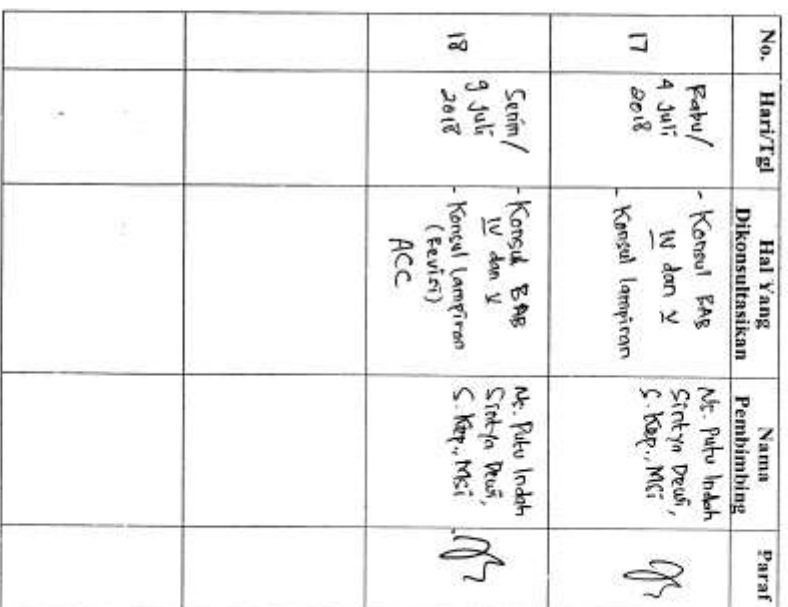 No. Hari/Tgl Hal Yang Dikonsultasikan Nama Pembimbing Paraf
17
Rabu/
4 Juli
2018
- Konsul BAB
IV dan V
- Konsul lampiran
Ns. Putu Indah
Sintya Dewi,
S. Kep., MSi
18
Senin/
9 Juli
2018
- Konsul BAB
IV dan V
- Konsul lampiran
(Revisi)
ACC
Ns. Putu Indah
Sintya Dewi,
S. Kep., MSi